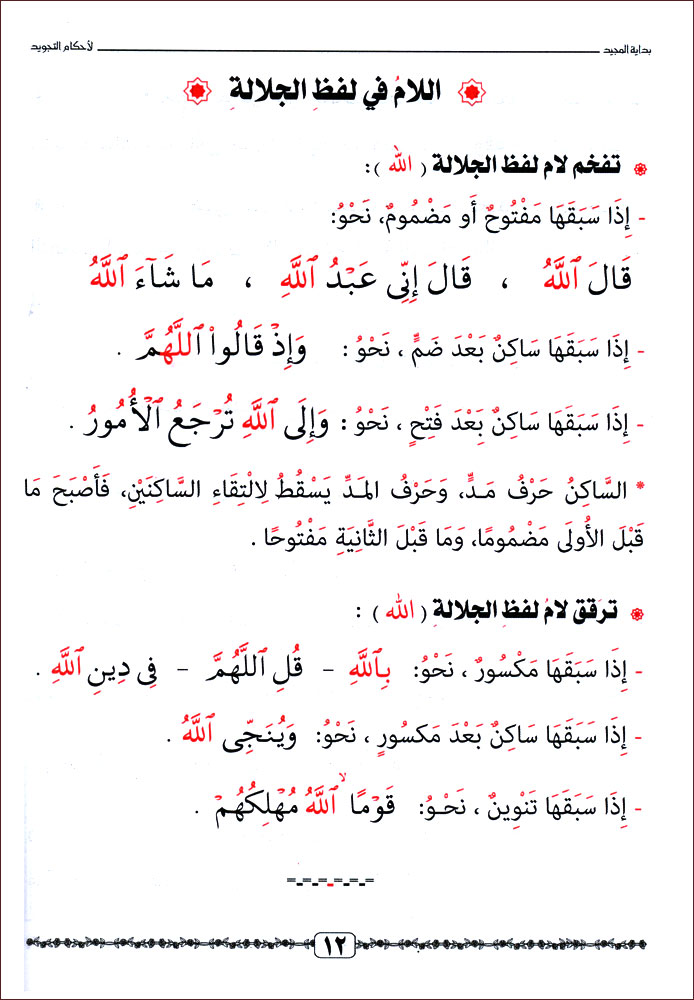 بداية المجيد لأحكام التجويد
اللامُ في لفظِ الجلالةِ
تفخم لام لفظ الجلالة ( الله ) :
- إِذَا سَبَقَهَا مَفْتُوحٌ أَو مَضْمُومٌ، نَحْوُ:
قَالَ ٱللَّهُ ، قَالَ إِنِّى عَبْدُ ٱللَّهِ ، مَا شَآءَ ٱللَّهُ
- إِذَا سَبَقَهَا سَاكِنٌ بَعْدَ ضَمٍّ ، نَحْوُ : وَإِذْ قَالُوا۟ ٱللَّهُمَّ .
- إِذَا سَبَقَهَا سَاكِنٌ بَعْدَ فَتْحٍ ، نَحْوُ : وَإِلَى ٱللَّهِ تُرْجَعُ ٱلْأُمُورُ .
* السَّاكِنُ حَرْفُ مَدٍّ، وَحَرْفُ المَدِّ يَسْقُطُ لِالْتِقَاءِ السَّاكِنَيْنِ، فَأَصْبَحَ مَا
قَبْلَ الأُولَى مَضْمُومًا، وَمَا قَبْلَ الثَّانِيَةِ مَفْتُوحًا .
ترَقق لامُ لفظِ الجلالةِ ( الله ) :
- إِذَا سَبَقَهَا مَكْسُورٌ ، نَحْوُ: بِٱللَّهِ - قُلِ ٱللَّهُمَّ - فِى دِينِ ٱللَّهِ .
- إِذَا سَبَقَهَا سَاكِنٌ بَعْدَ مَكسُورٍ ، نَحْوُ: وَيُنَجِّى ٱللَّهُ .
- إِذَا سَبَقَهَا تَنْوِينٌ ، نَحْـوُ: قَوْمًا ۙ ٱللَّهُ مُهْلِكُهُمْ .
١٢